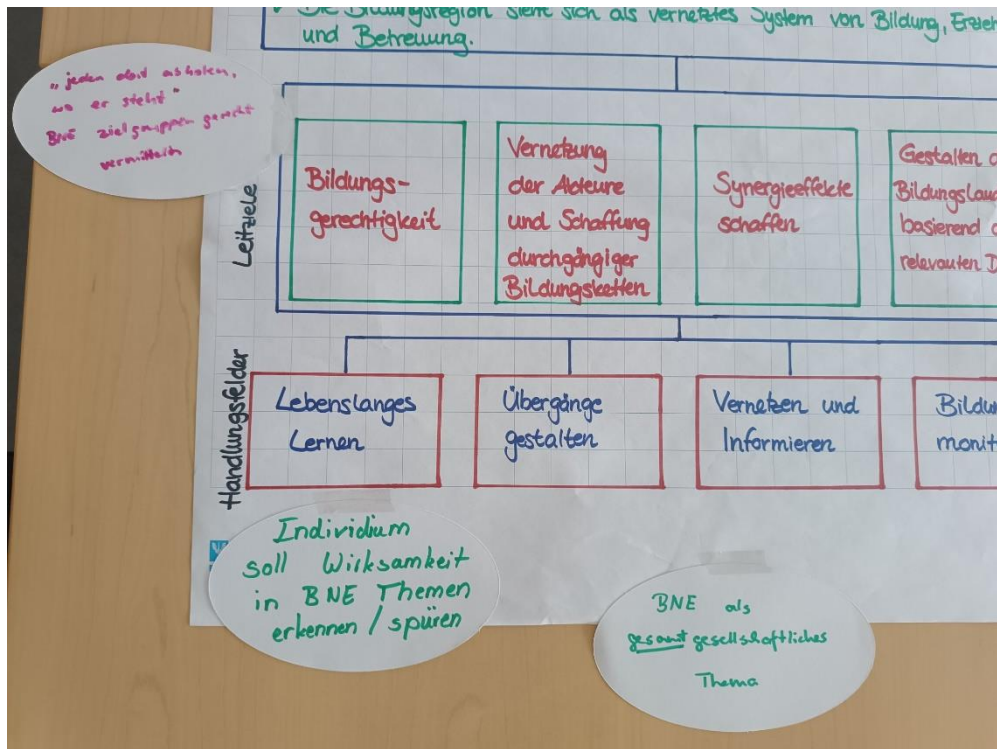 Die Bildungsregion sieht sich als vernetztes System von Bildung, Erzieh
und Betreuung.
"jeden dort abholen,
wo er steht"
BNE zielgruppen gerecht
vermitteln
Leitziele
Bildungs-
gerechtigkeit
Vernetzung
der Akteure
und Schaffung
durchgängiger
Bildungsketten
Synergieeffekte
schaffen
Gestalten
Bildungs
basierend
relevanten D
Handlungsfelder
Lebenslanges
Lernen
Übergänge
gestalten
Vernetzen und
Informieren
Bildu
monit
Individium
soll Wirksamkeit
in BNE Themen
erkennen / spüren
BNE als
gesamt gesellschaftliches
Thema